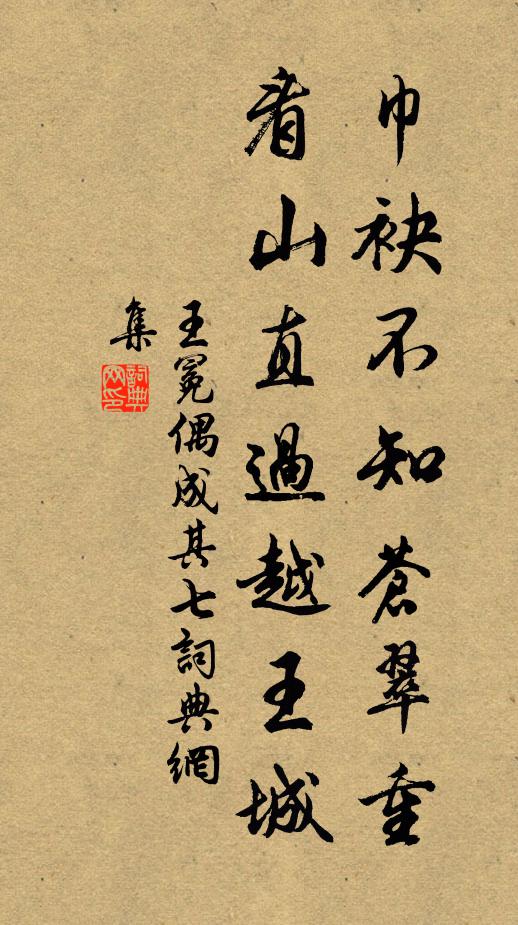 巾袂不知蒼翠重
看山直過越王城
王冕偶成其七詞典網
集
詞典
网印